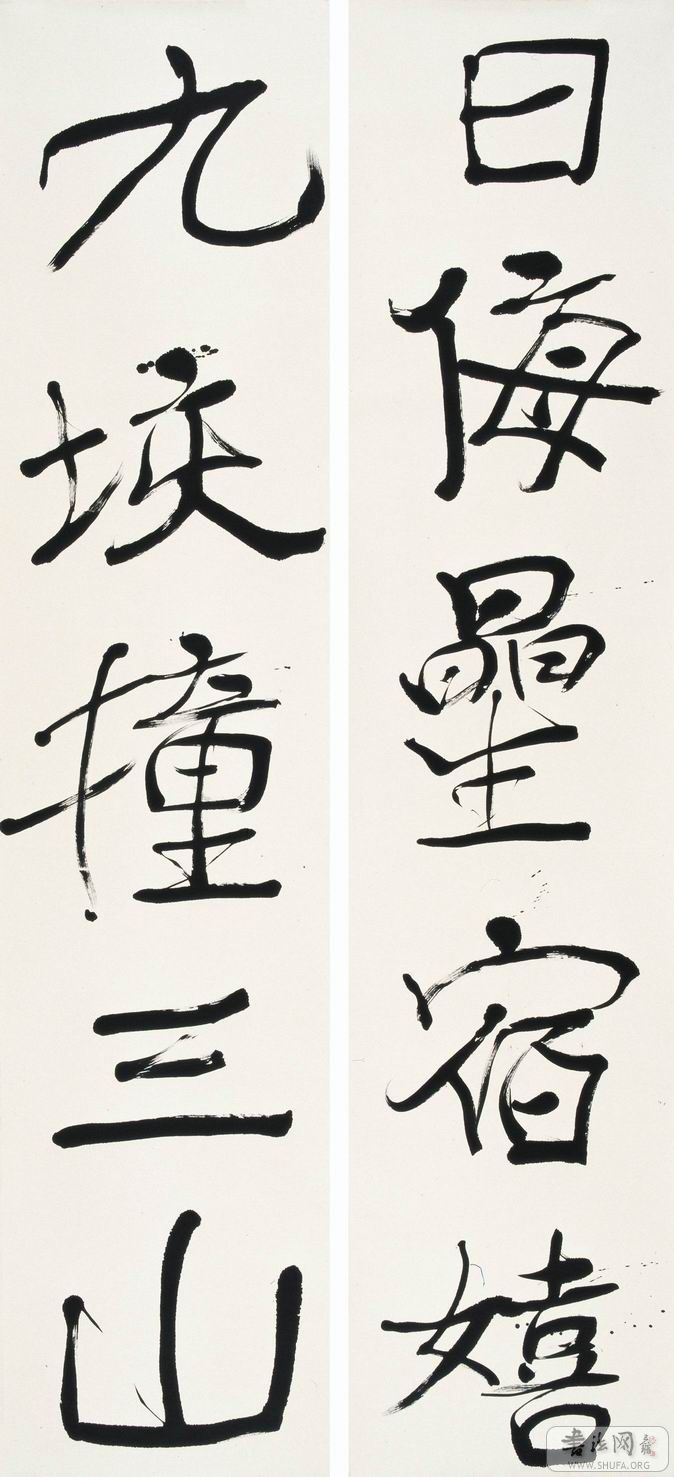 日侮曐宿嬉
九垓撞三山
書法网
WWW.SHUFA.ORG